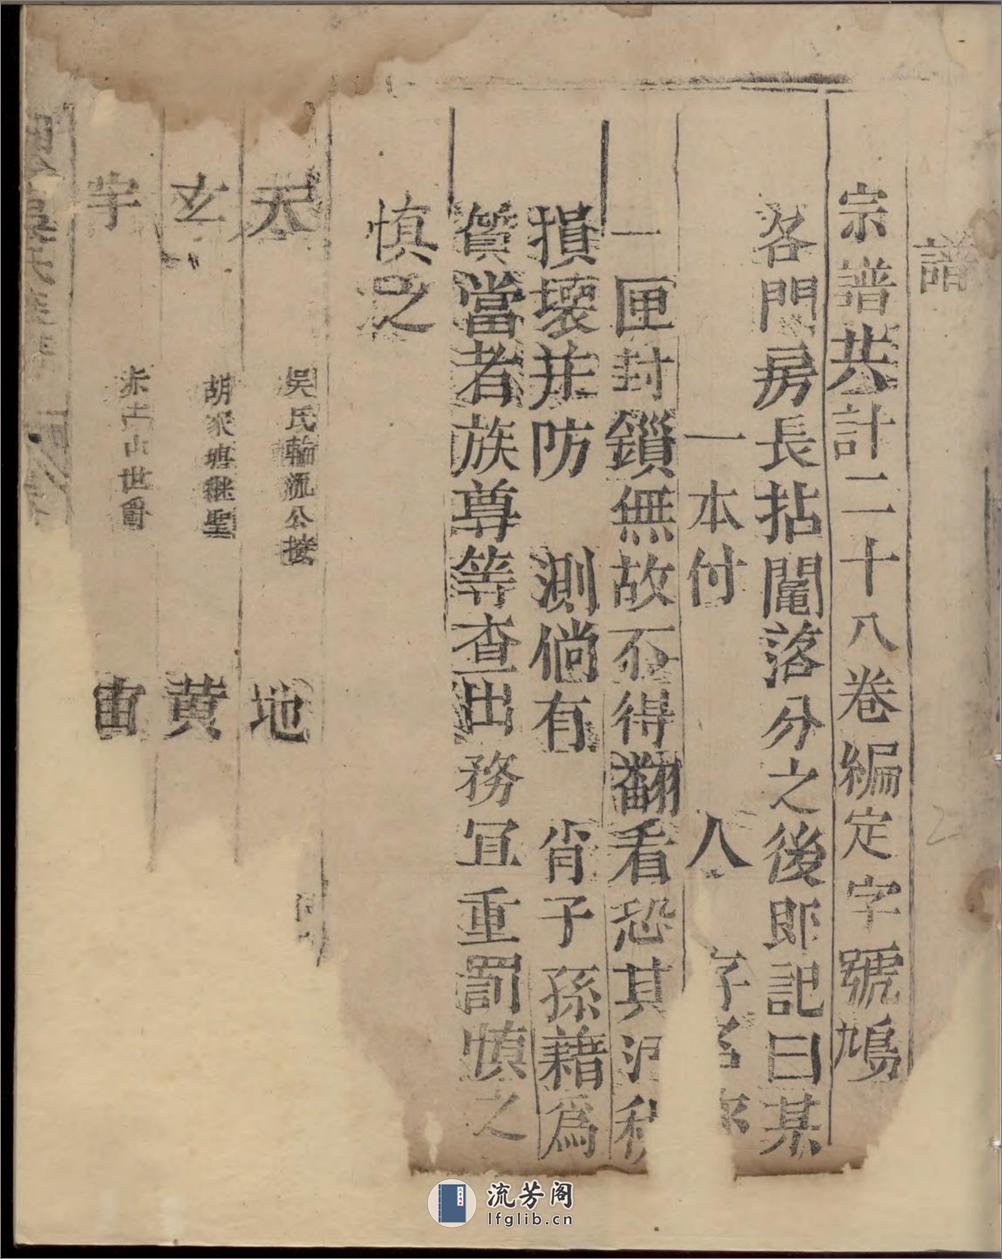 譜
宗譜共計二十八卷編定字號鳩
各門房長拈鬮落分之後即記曰某
一本付 人 字名
一匣封鎖無故不得翻看恐其污穢
損壞并防 測倘有 肖子孫藉為
質當者族尊等查出務宜重罰慎之
慎之
天 吳氏輪流公接 地
玄 胡家塘継聖 黄
宇 朱士山世爵 宙
吳氏
流芳阁
lfglib.cn